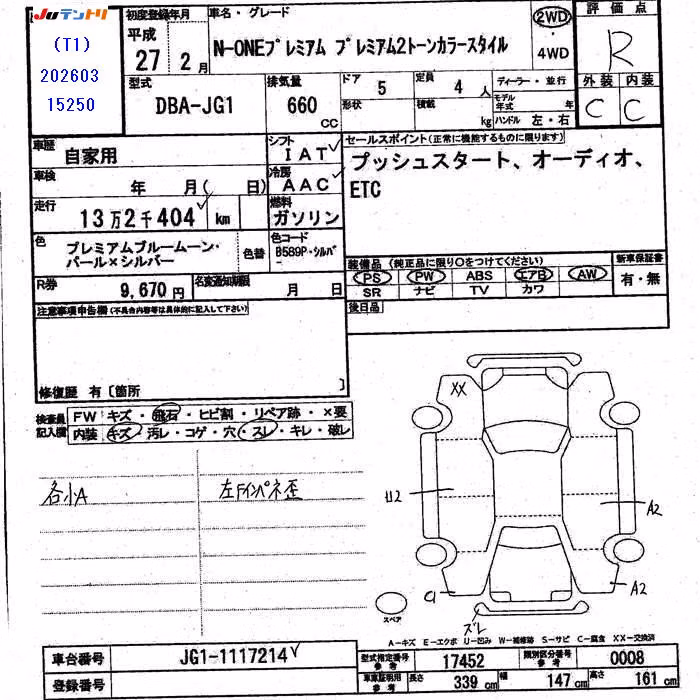 JUテントリ
(T1)
202603
15250
初度登録年月
平成
27年 2月
車名・グレード
N-ONEプレミアム プレミアム2トーンカラースタイル
2WD
・
4WD
評価点
R
型式
DBA-JG1
排気量
660
CC
ドア
5
形状
定員
4人
積載
kg
ディーラー・並行
モデル年式 年
ハンドル 左・右
外装 内装
C C
車歴
自家用
シフト
IAT
車検
年 月( 日)
冷房
AAC
走行
13万2千404 km
燃料
ガソリン
色
プレミアムブルームーン・
パール×シルバー
色替
色コード
B589P・シルバ
ー
R券
9,670円
名変通知期限
月 日
セールスポイント(正常に機能するものに限ります)
プッシュスタート、オーディオ、
ETC
装備品(純正品に限り○をつけてください)
新車保証書
PS PW ABS エアB AW
有・無
SR ナビ TV カワ
後日品
注意事項申告欄(不具合内容等は具体的に記入して下さい)
修復歴 有〔箇所 〕
検査員
記入欄
FW キズ・飛石・ヒビ割・リペア跡・×要
内装 キズ・汚レ・コゲ・穴・スレ・キレ・破レ
各小A
左Fインパネ歪
XX
U2
A2
C1
A2
ズレ
スペア
A-キズ E-エクボ U-凹み W-補修跡 S-サビ C-腐食 XX-交換済
車台番号
JG1-1117214
登録番号
型式指定番号
参考
17452
類別区分番号
参考
0008
車車証明用
参考
長さ 339cm 幅 147cm 高さ 161cm